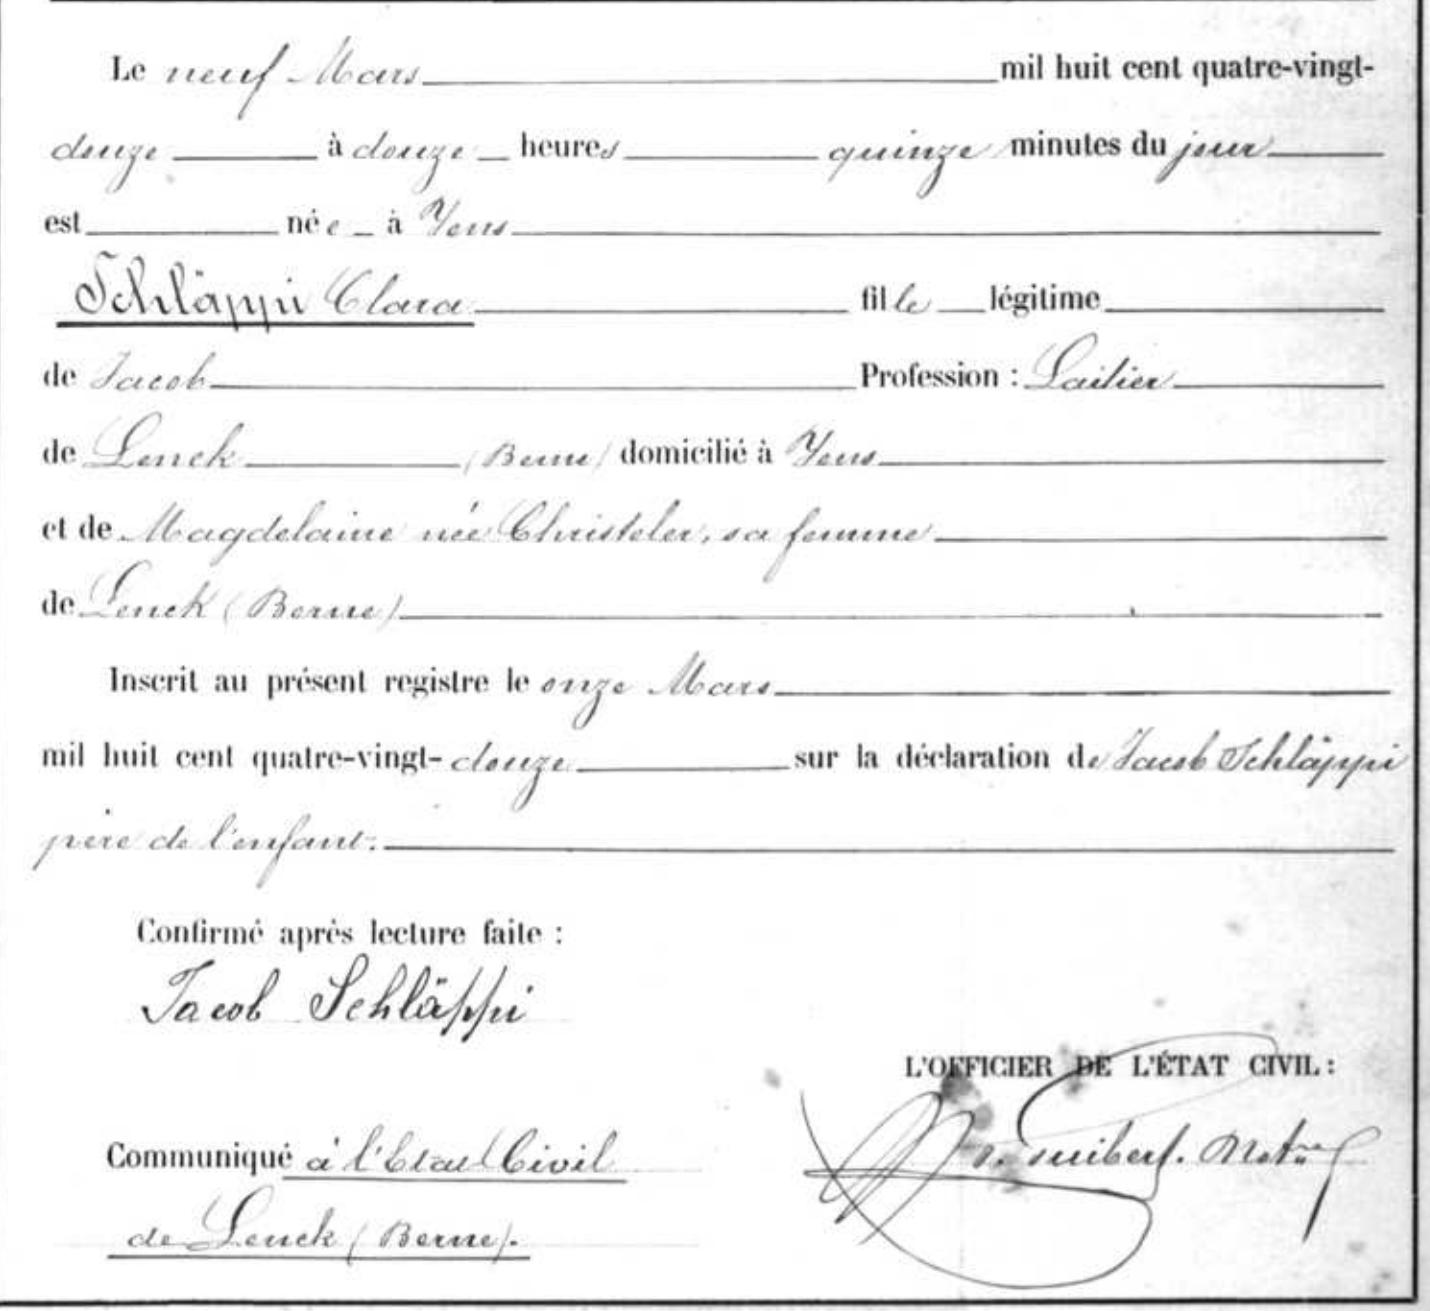 Le neuf Mars mil huit cent quatre-vingt-
douze à douze heures quinze minutes du jour
est née à Yens
Schläppi Clara fille légitime
de Jacob Profession : Laitier
de Lenck (Berne) domicilié à Yens
et de Magdelaine née Christeler, sa femme
de Lenck (Berne)
Inscrit au présent registre le onze Mars
mil huit cent quatre-vingt-douze sur la déclaration de Jacob Schläppi
père de l'enfant.
Confirmé après lecture faite :
Jacob Schläppi
L'OFFICIER DE L'ÉTAT CIVIL :
Communiqué à l'Etat Civil
de Lenck (Berne).